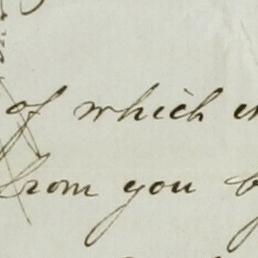 of which
from you